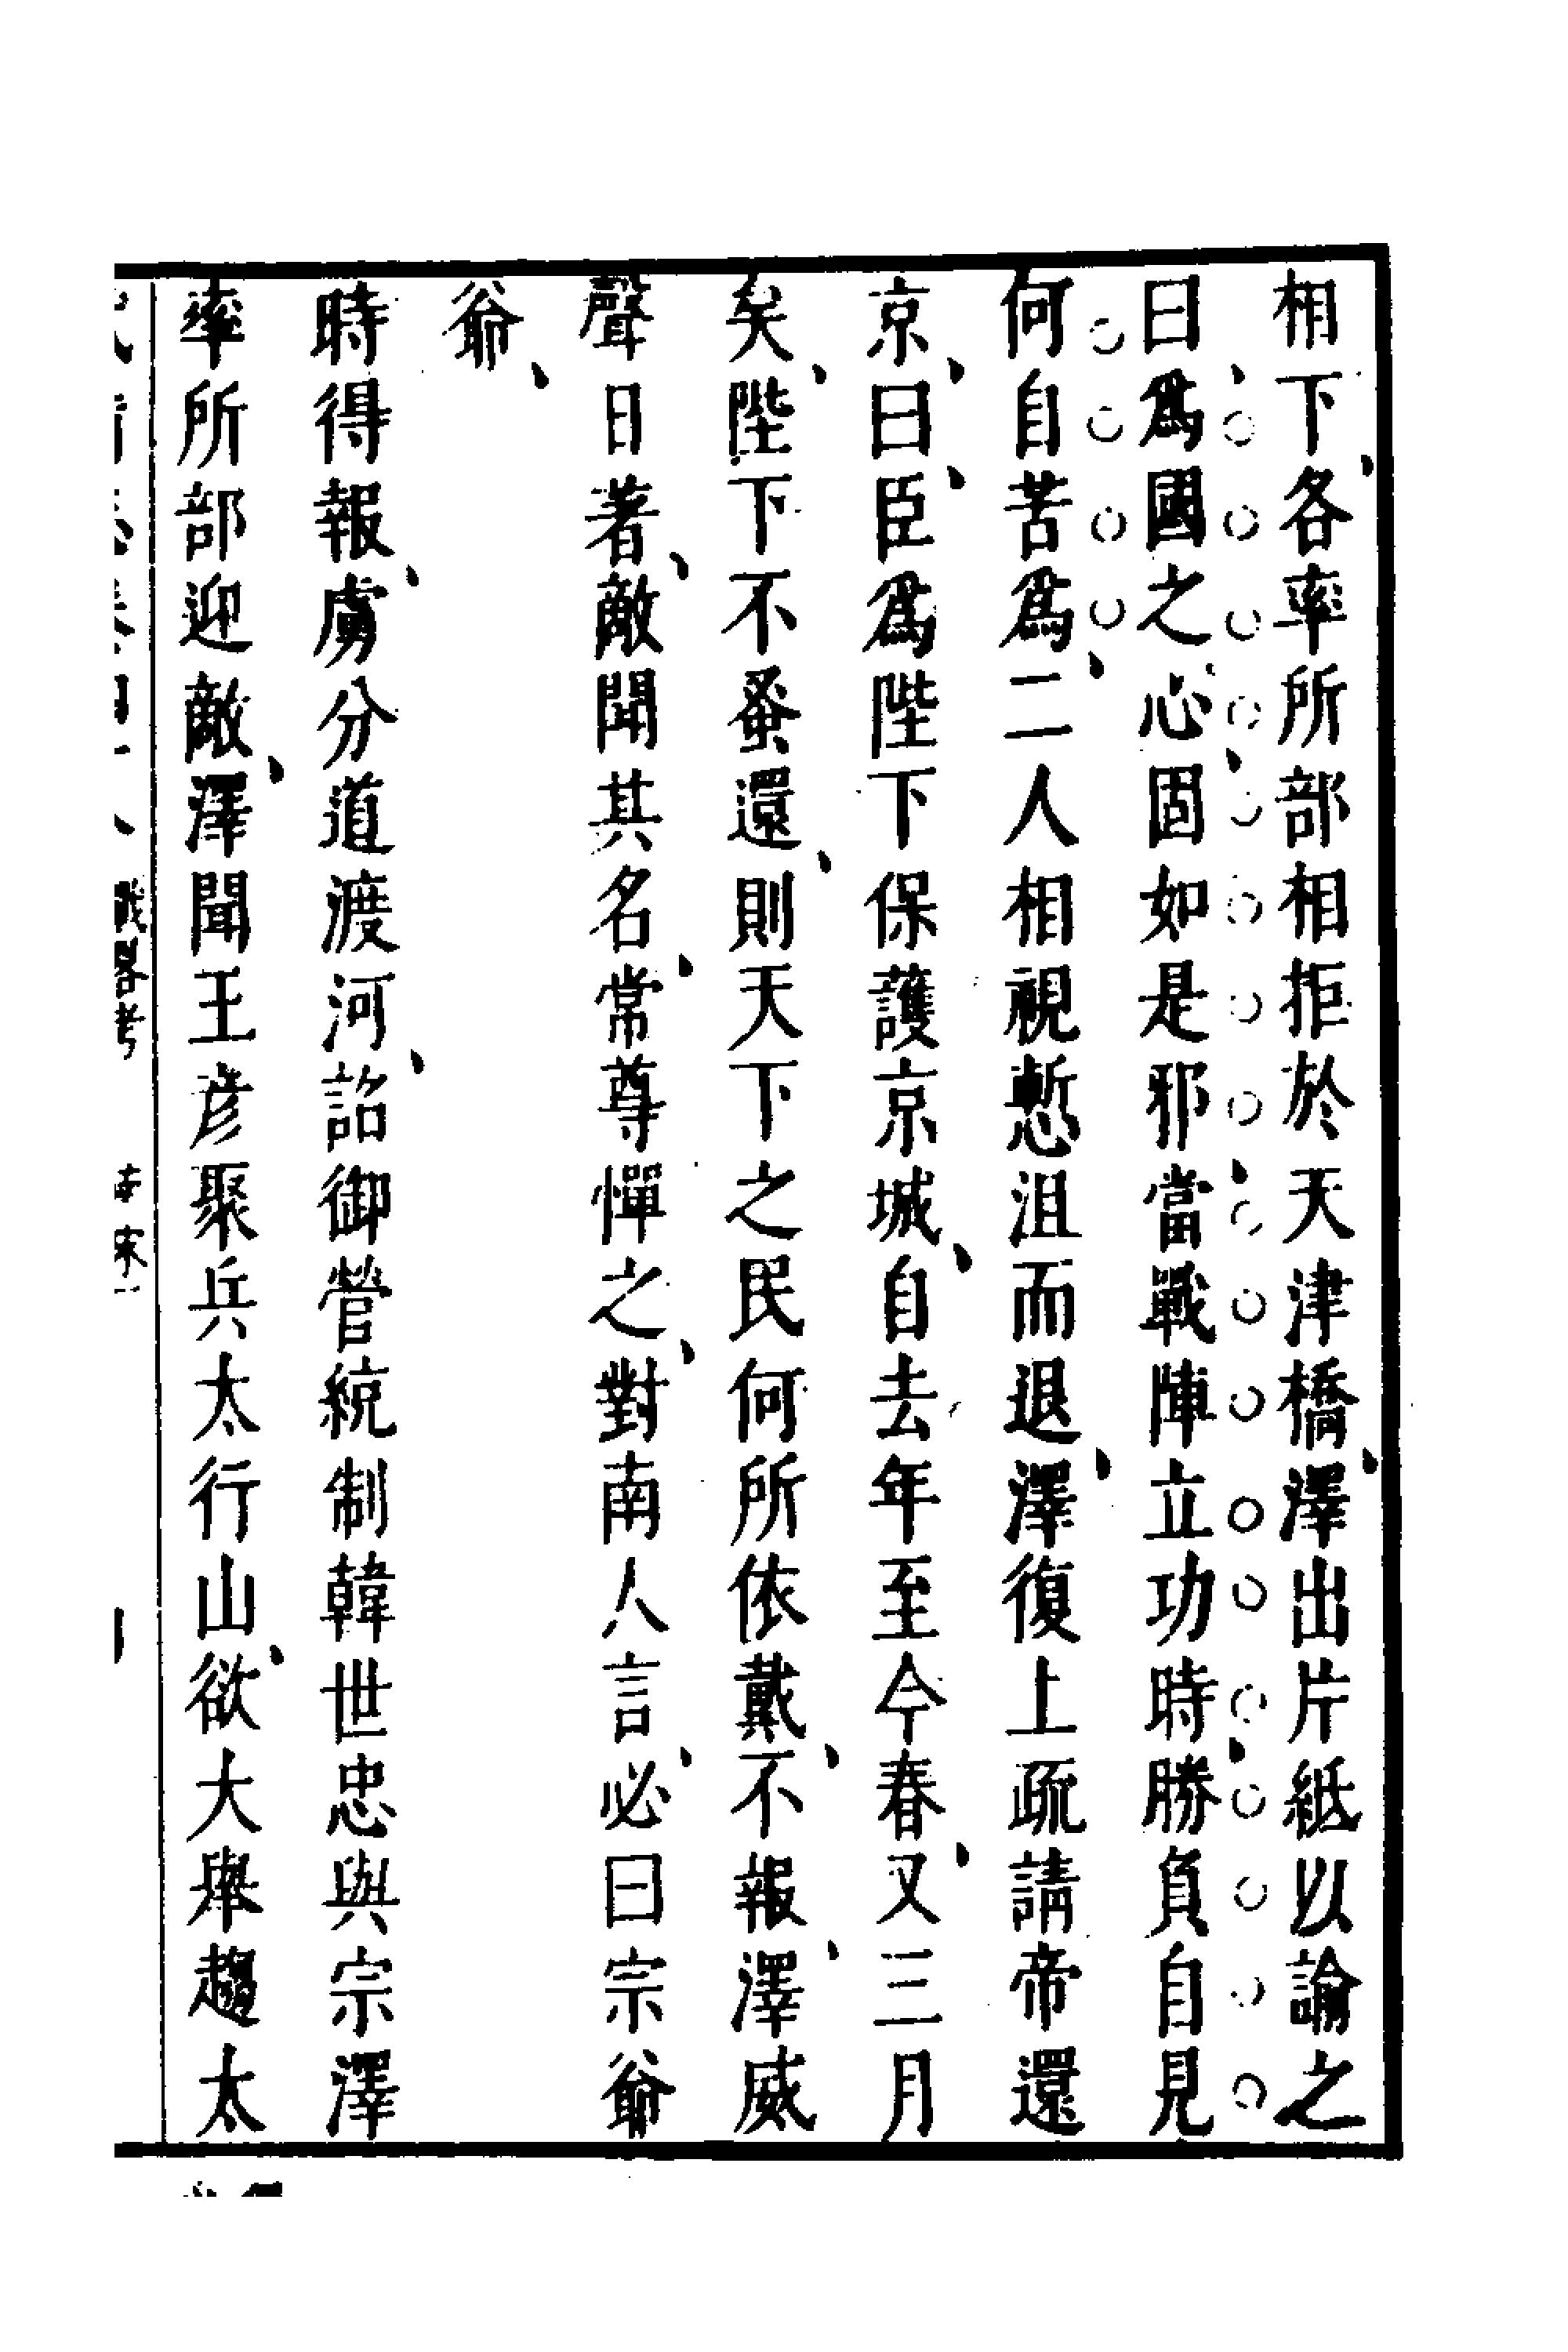 相下各率所部相拒於天津橋澤出片紙以諭之
曰爲國之心固如是邪當戰陣立功時勝負自見
何自苦爲二人相視慙沮而退澤復上疏請帝還
京曰臣爲陛下保護京城自去年至今春又三月
矣陛下不蚤還則天下之民何所依戴不報澤威
聲日著敵聞其名常尊憚之對南人言必曰宗爺
爺
時得報虜分道渡河詔御營統制韓世忠與宗澤
率所部迎敵澤聞王彦聚兵太行山欲大舉趨太
戰畧考